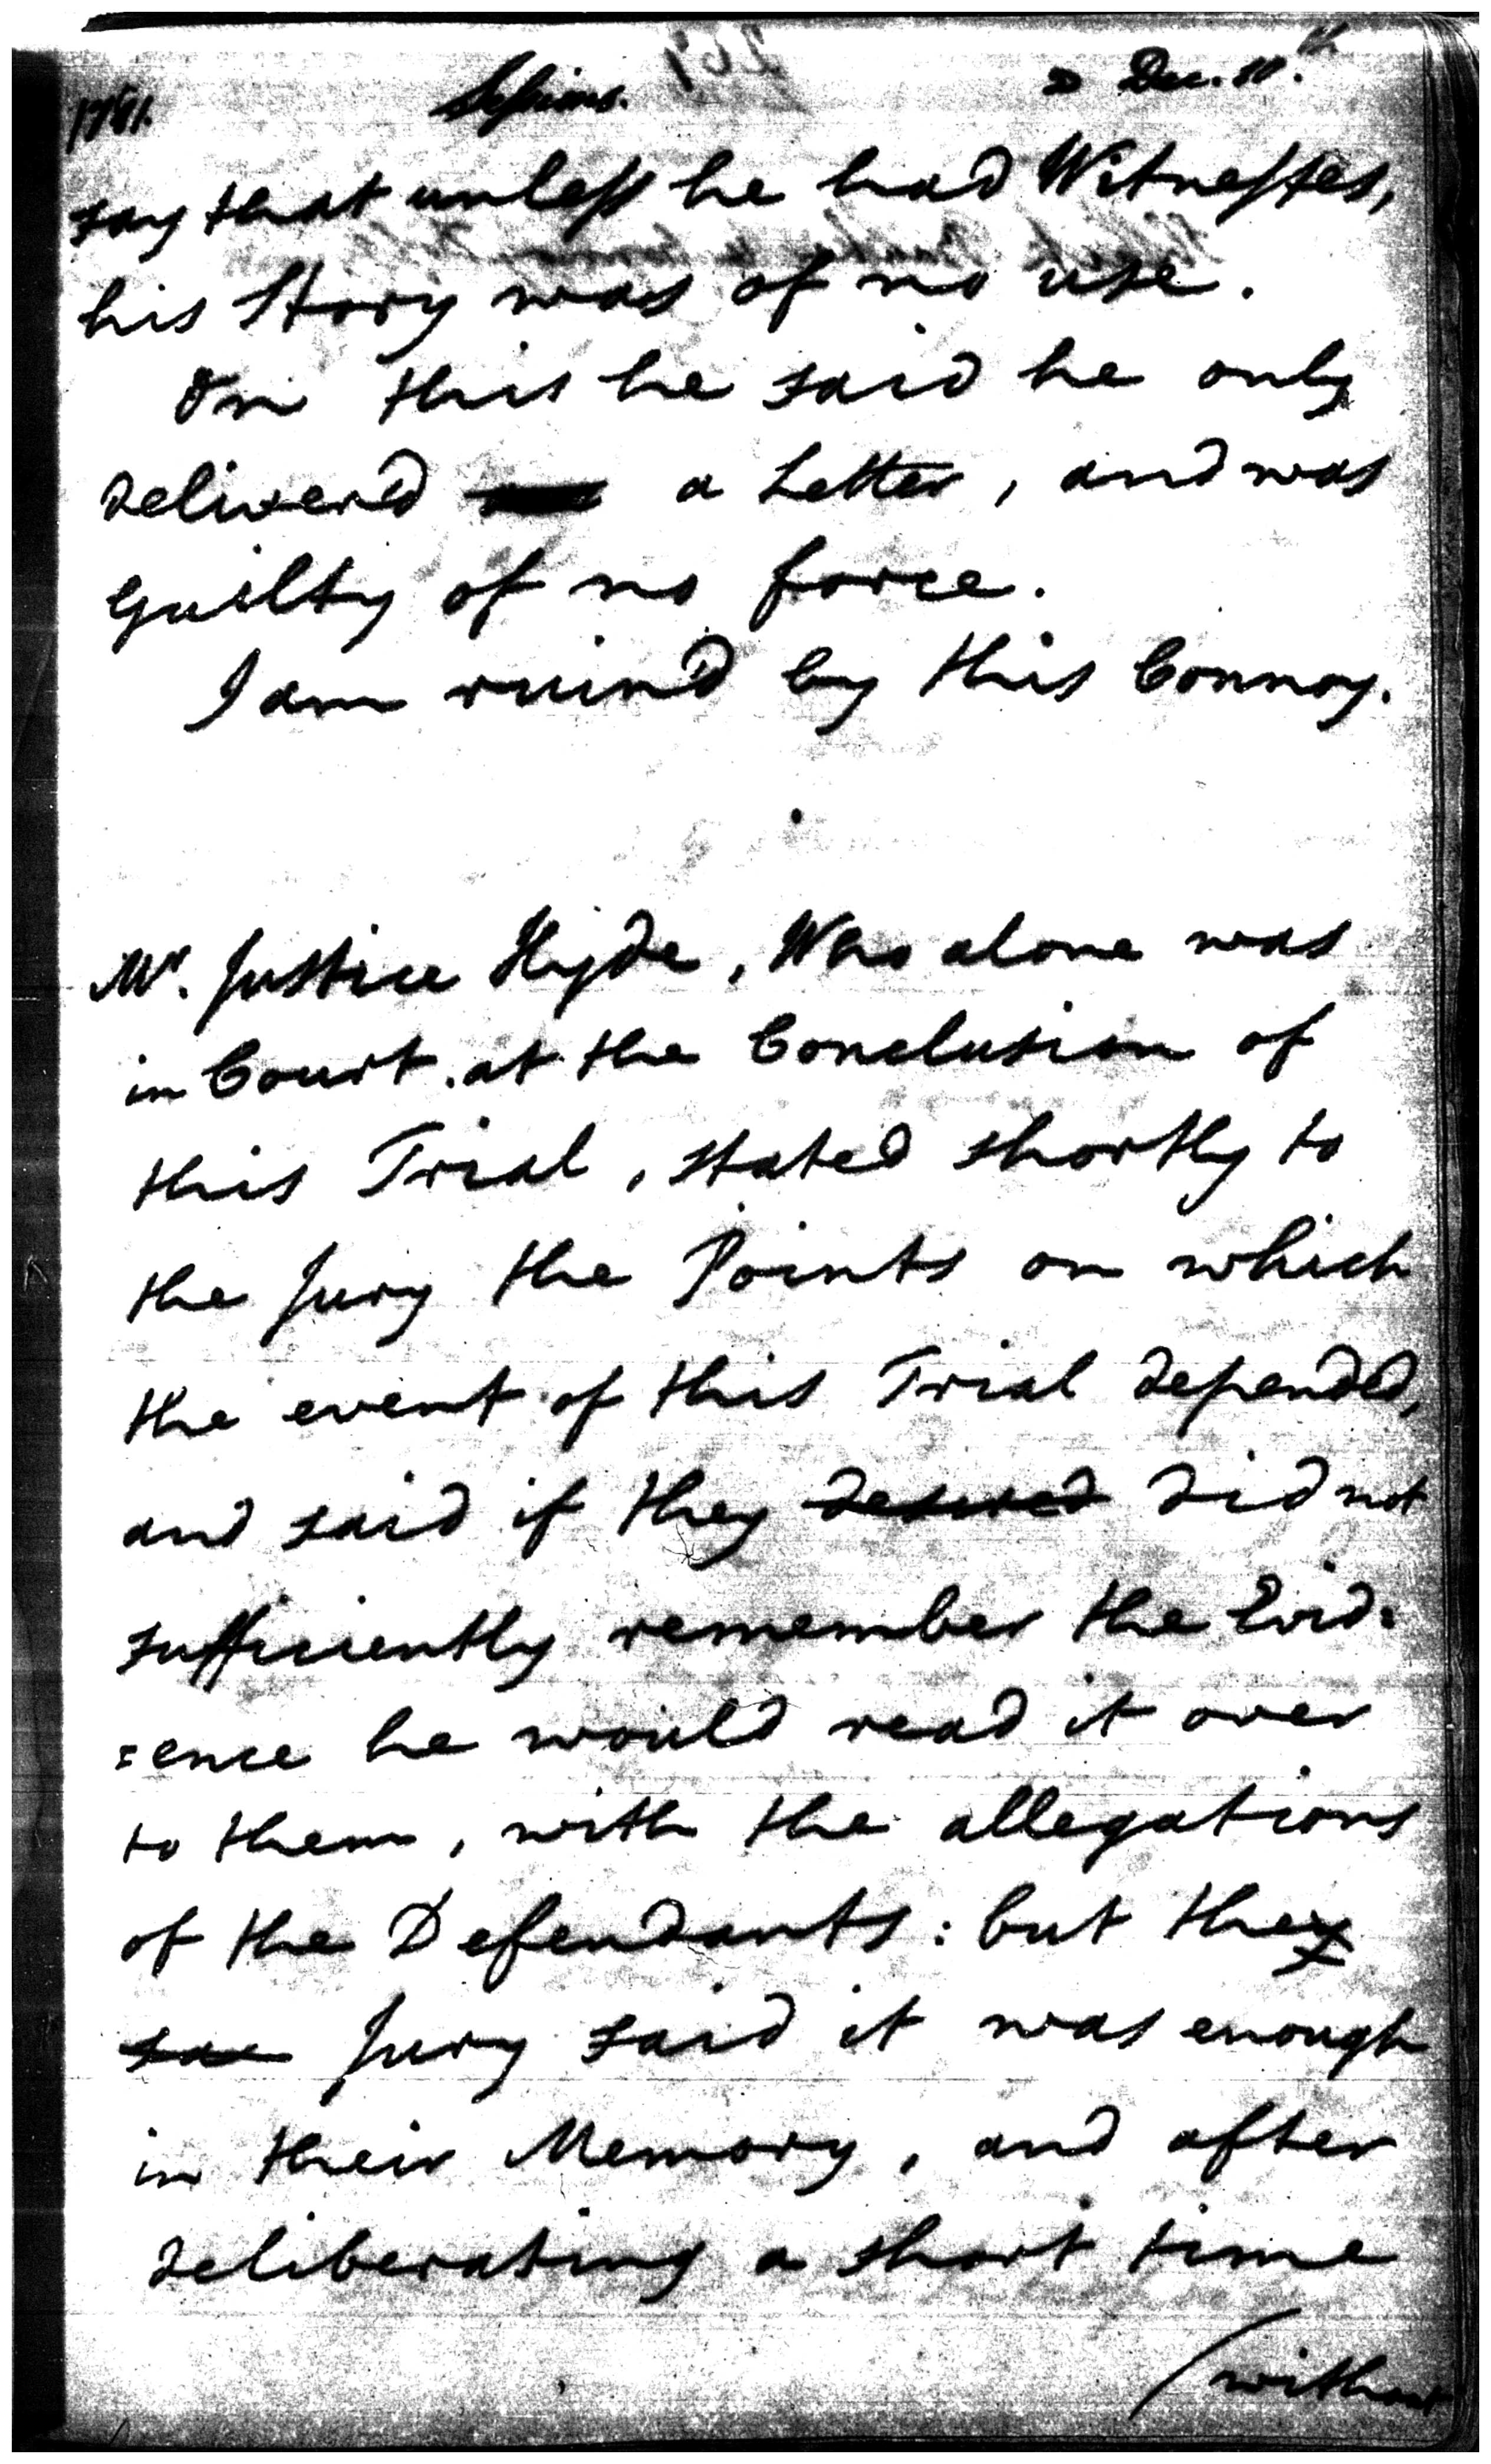 1781. Sessions. Dec. 10.th
say that unless he had Witnesses,
his Story was of no use.
On this he said he only
delivered a Letter, and was
guilty of no force.
I am ruin'd by this Connoy.
Mr. Justice Hyde, Who alone was
in Court at the Conclusion of
this Trial, stated shortly to
the Jury the Points on which
the event of this Trial depended,
and said if they desired did not
sufficiently remember the Evid=
=ence he would read it over
to them, with the allegations
of the Defendants: but they
Jury said it was enough
in their Memory, and after
deliberating a short time
(without